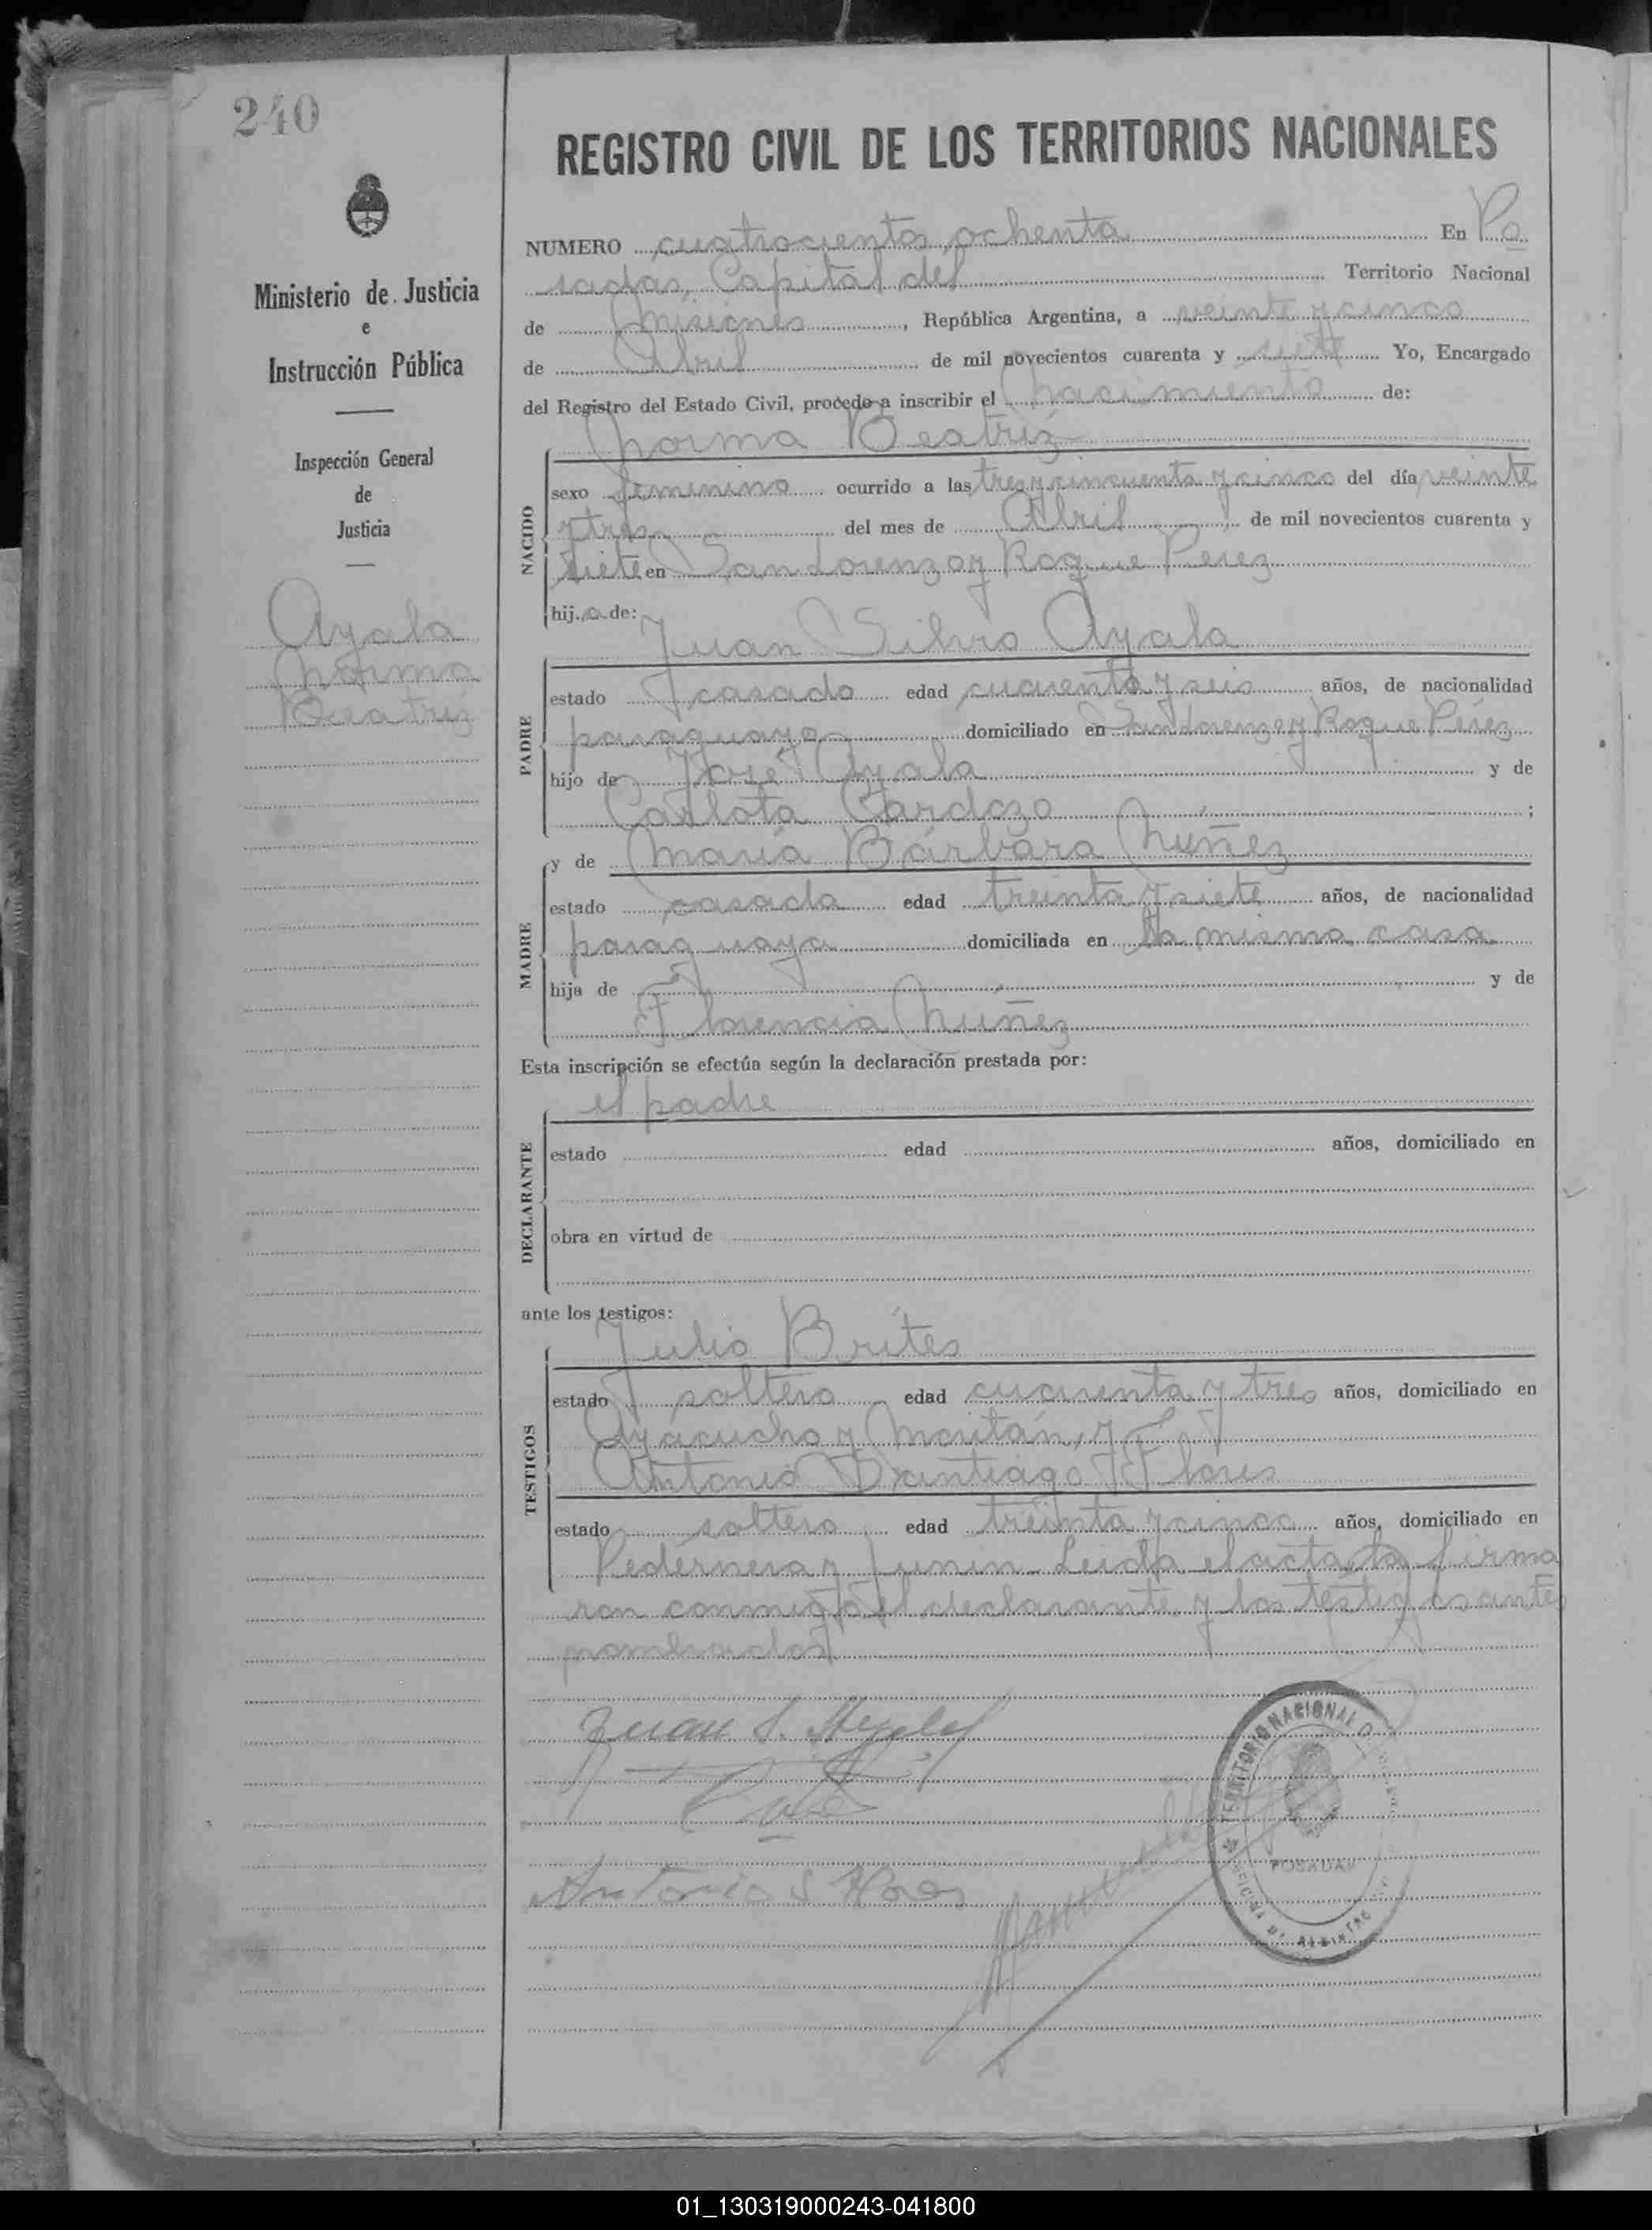 240
Ministerio de Justicia
e
Instrucción Pública
Inspección General
de
Justicia
Ayala
Norma
Beatriz
REGISTRO CIVIL DE LOS TERRITORIOS NACIONALES
NUMERO cuatrocientos ochenta En Po
sadas, Capital del Territorio Nacional
de Misiones, República Argentina, a veinte y cinco
de Abril de mil novecientos cuarenta y siete Yo, Encargado
del Registro del Estado Civil, procedo a inscribir el nacimiento de:
Norma Beatriz
NACIDO
sexo femenino ocurrido a las tres y cincuenta y cinco del día veinte
y tres del mes de Abril de mil novecientos cuarenta y
siete en San Lorenzo y Roque Pérez
hija de:
Juan Silvio Ayala
PADRE
estado casado edad cuarenta y seis años, de nacionalidad
paraguayo domiciliado en San Lorenzo y Roque Pérez
hijo de José Ayala y de
Carlota Cardozo ;
y de María Bárbara Nuñez
MADRE
estado casada edad treinta y siete años, de nacionalidad
paraguaya domiciliada en la misma casa
hija de y de
Florencia Nuñez
Esta inscripción se efectúa según la declaración prestada por:
el padre
DECLARANTE
estado edad años, domiciliado en
obra en virtud de
ante los testigos:
Julio Brites
TESTIGOS
estado soltero edad cuarenta y tres años, domiciliado en
Ayacucho y Moritán, y
Antonio Santiago Flores
estado soltero edad treinta y cinco años, domiciliado en
Pedernera y Junin. Leida el acta la firma
ron conmigo el declarante y los testigos ante
nombrados
Juan S. Ayala
Antonio S Flores
TERRITORIO NACIONAL D
POSADAS
OFICINA DE REGISTRO
01_130319000243-041800